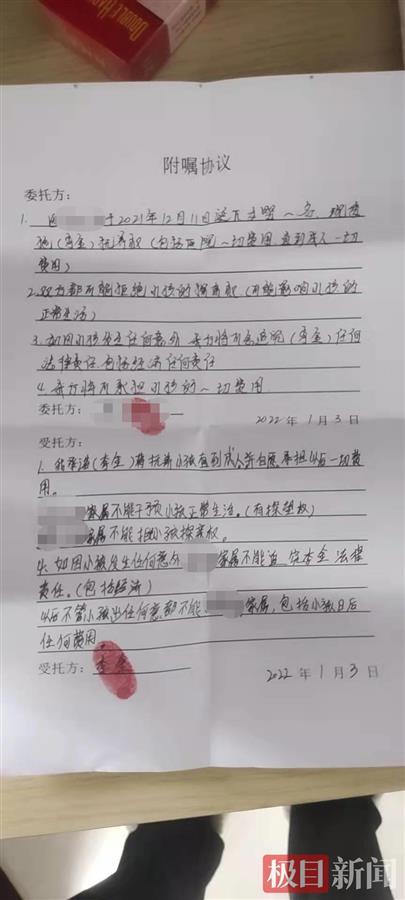 DOUBLE HA
附嘱协议
委托方：
1. 因 于2021年12月11日诞下 一名，现委
托(李全)抚养权(包括医院一切费用直到成人一切
费用)
2.双方都不能拒绝小孩的探亲权(不能影响小孩的
正常生活)
3.如因小孩发生任何意外 女方将不会追究(李全)任何
法律责任包括经济任何责任
4.女方将不承担小孩的一切费用
委托方：
2022年1月3日
受托方：
1.我承诺(李全)将抚养小孩直到成人并自愿承担以后一切费
用。
家属不能干预小孩正常生活。(有探望权)
家属不能拒小孩探亲权。
4.如因小孩发生任何意外 家属不能追究李全法律
责任。(包括经济)
以后不管小孩出任何意 都不能 家属，包括小孩日后
任何费用
受托方：李全
2022年1月3日
极目新闻